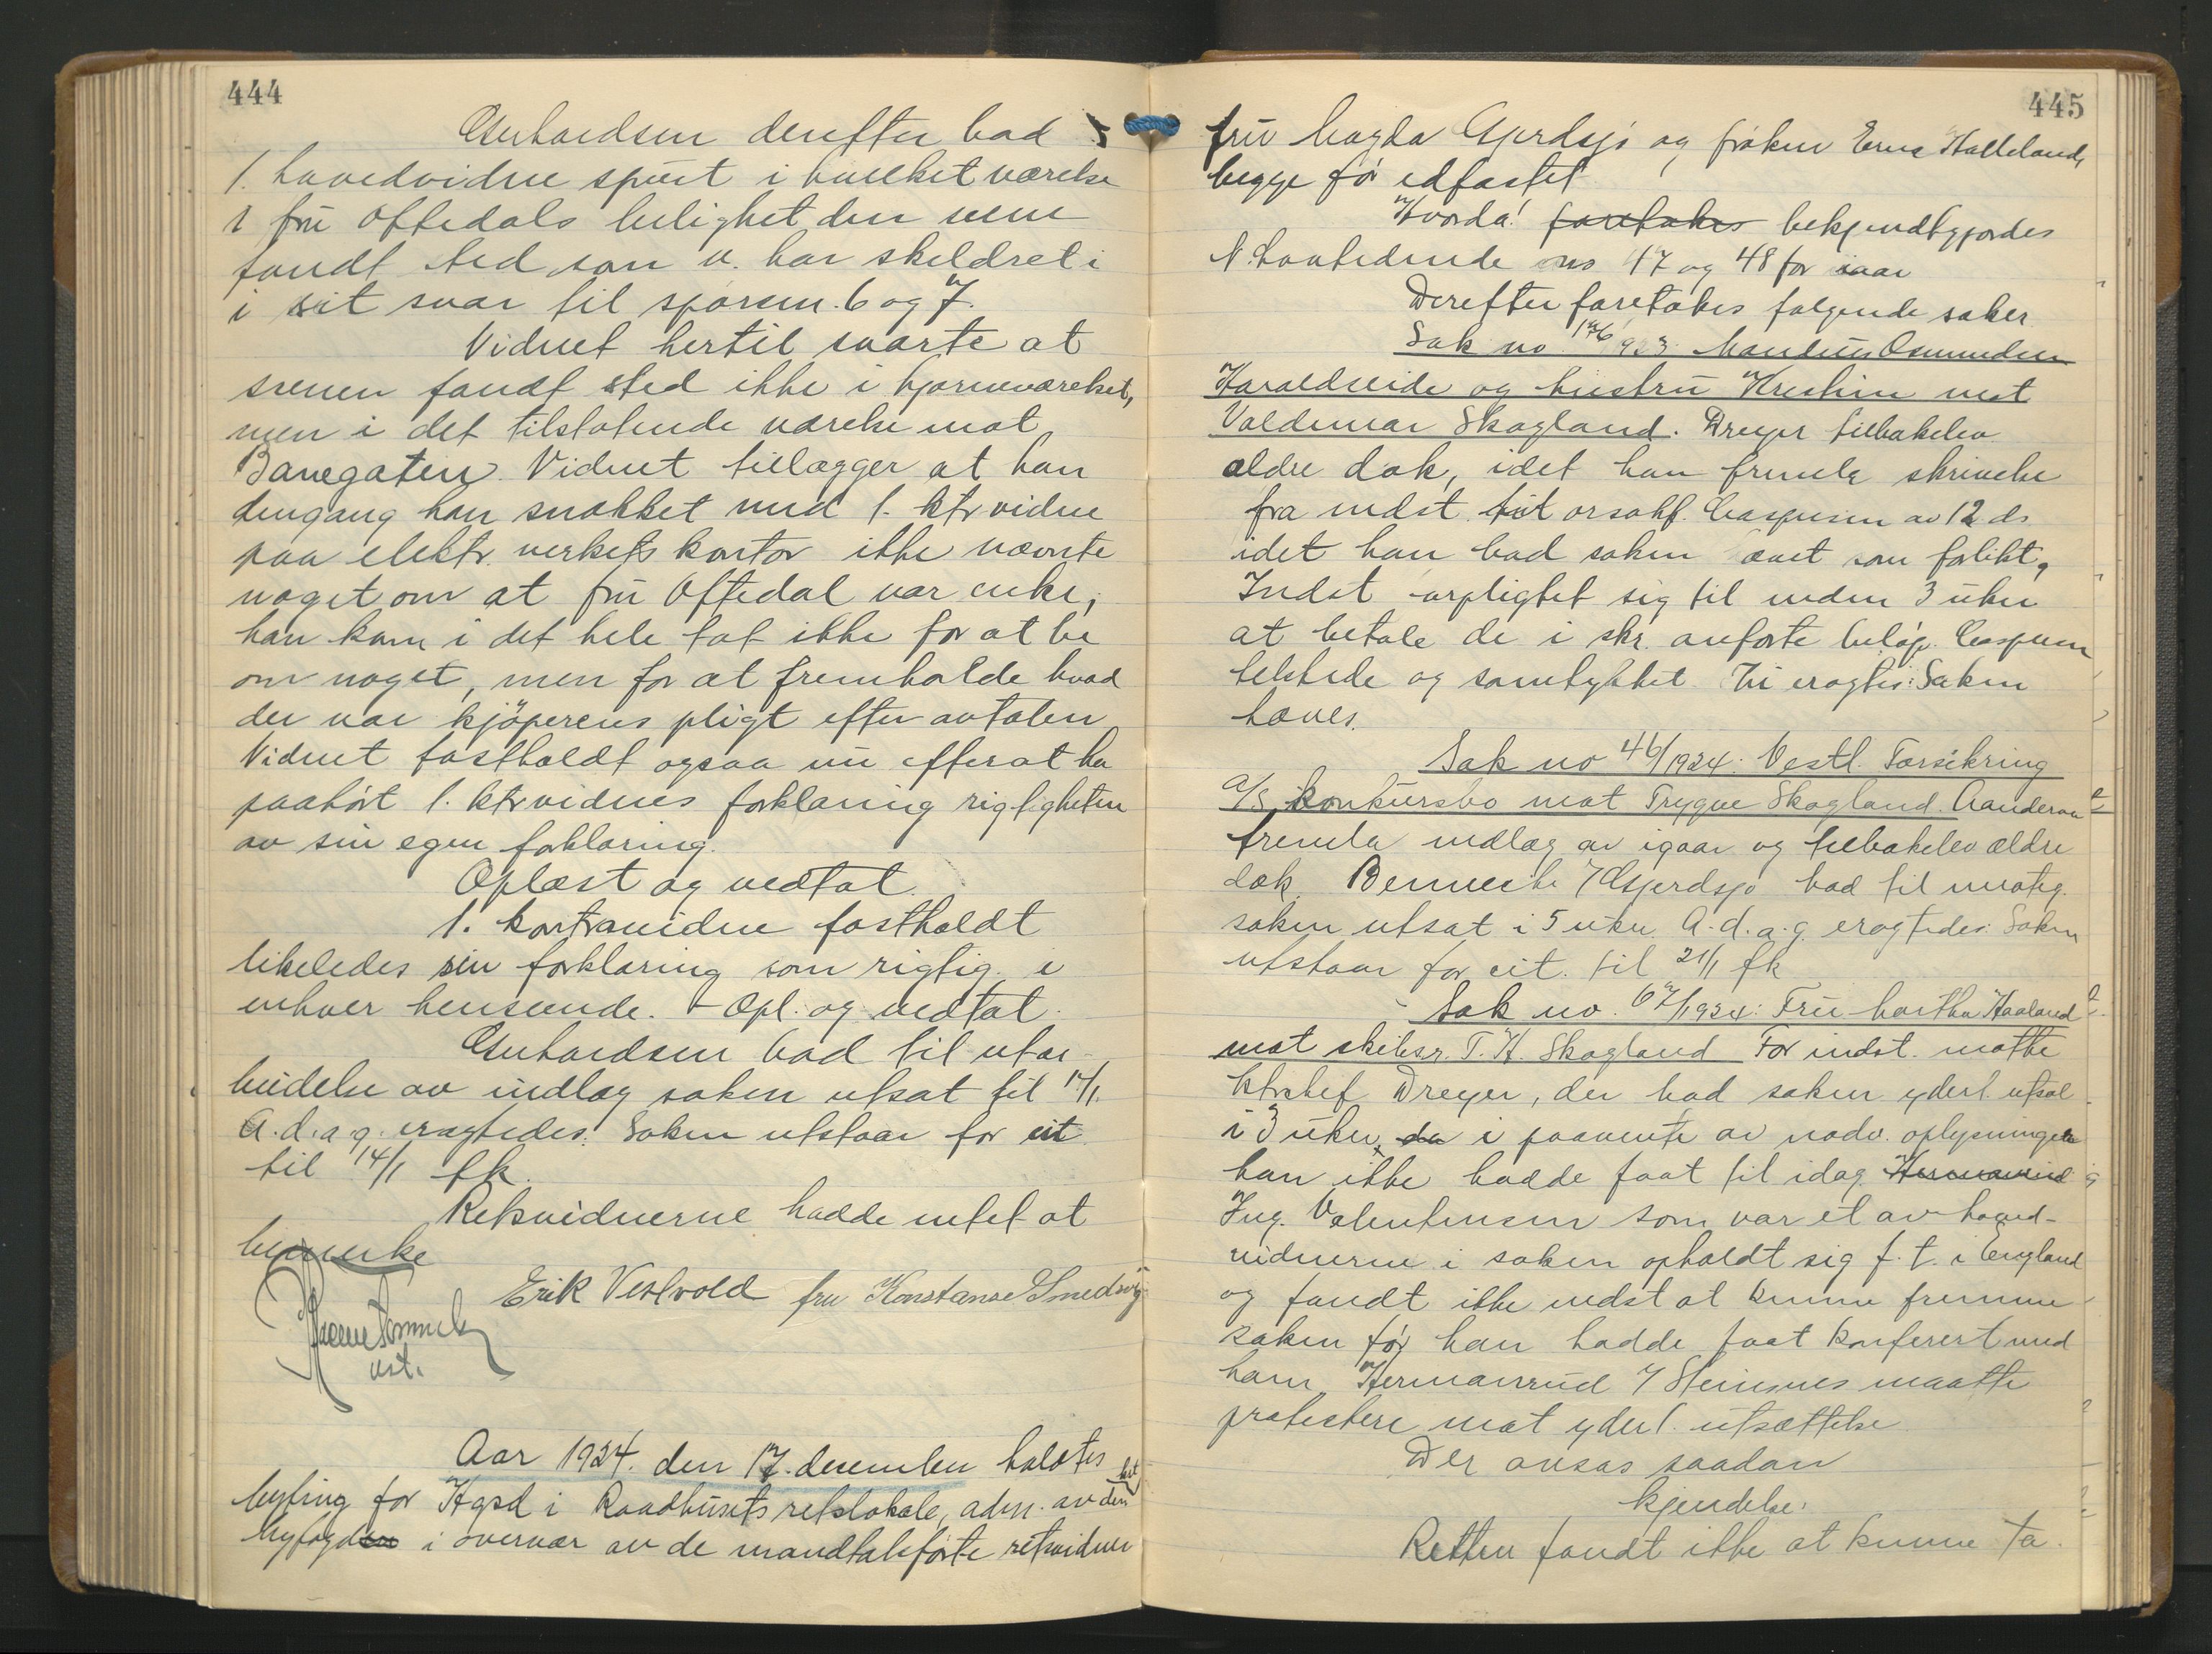 444
Gerhardsen derefter bad
1. hovedvidne spurt i hvilket værelse
i fru Oftedals leilighet den scene
fandt sted som v. har skildret i
i sit svar til spörsm. 6 og 7.
Vidnet hertil svarte at
scenen fandt sted ikke i hjörneværelset,
men i det tilstötende værelse mot
Banegaten. Vidnet tillægger at han
dengang han snakket med 1. ktrvidne
paa elektr. verkets kontor ikke nævnte
noget om at fru Oftedal var enke,
han kom i det hele tat ikke for at be
om noget, men for at fremholde hvad
der var kjöperens pligt efter avtalen
Vidnet fastholdt ogsaa nu efterat ha
paahört 1. ktrvidnes forklaring rigtigheten
av sin egen forklaring.
Oplæst og vedtat.
1. kontravidne fastholdt
likeledes sin forklaring som rigtig i
enhver henseende. - Opl. og vedtat.
Gerhardsen bad til utar-
beidelse av indlæg saken utsat til 14/1.
A.d.a.g. eragtedes: Saken utstaar for eit
til 14/1 fk.
Retsvidnerne hadde intet at
bemerke
Erik Vestvold fru Konstanse Smedsvig
ast.
Aar 1924. den 17. december holdtes
byting for Hgsd i Raadhusets retslokale, adm. av den
byfogden i overvær av de mandtalsförte retsvidner
445
fru Magda Gjerdsjö og fröken Erna Halleland,
begge før edfæstet
Hvorda! foretokes bekjendtgjordes
N. Lovtidende no 47 og 48 for iaar
Derefter foretokes følgende saker
Sak no 176/1923 Mandius Osmundsen
Haraldseide og hustru Kristine mot
Valdemar Skogland. Dreyer tilbakelev.
ældre dok, idet han fremla skrivelse
fra indst. til orsakf. Caspersen av 12 ds
idet han bad saken hævet som forlikt,
Indst forpligtet sig til inden 3 uker
at betale de i skr. anførte beløp. Caspersen
tilstede og samtykket. Ti eragtes: Saken
hæves.
Sak no 46/1924: Vestl. Forsikring
A/S konkursbo mot Trygve Skogland. Aanderaa
fremla indlæg av igaar og tilbakelev ældre
dok. Bennecke / Gjerdsjö bad til imøteg.
saken utsat i 5 uker A.d.a.g. eragtedes: Saken
utstaar for eit. til 21/1 fk
Sak no. 67/1924: Fru Martha Haaland
mot skibsr. T. H. Skogland For indst. møtte
ktrchef Dreyer, der bad saken yderl. utsat
i 3 uker, da i paavente av nødv. oplysninger
han ikke hadde faat til idag. Hermanrud
Ing. Valentinsen som var et av hoved-
vidnerne i saken opholdt sig f. t. i England
og fandt ikke indst at kunne fremme
saken før han hadde faat konferert med
ham. Hermanrud / Steinsnes maatte
protestere mot yderl. utsættelse
Der avsas saadan
kjendelse:
Retten fandt ikke at kunne ta